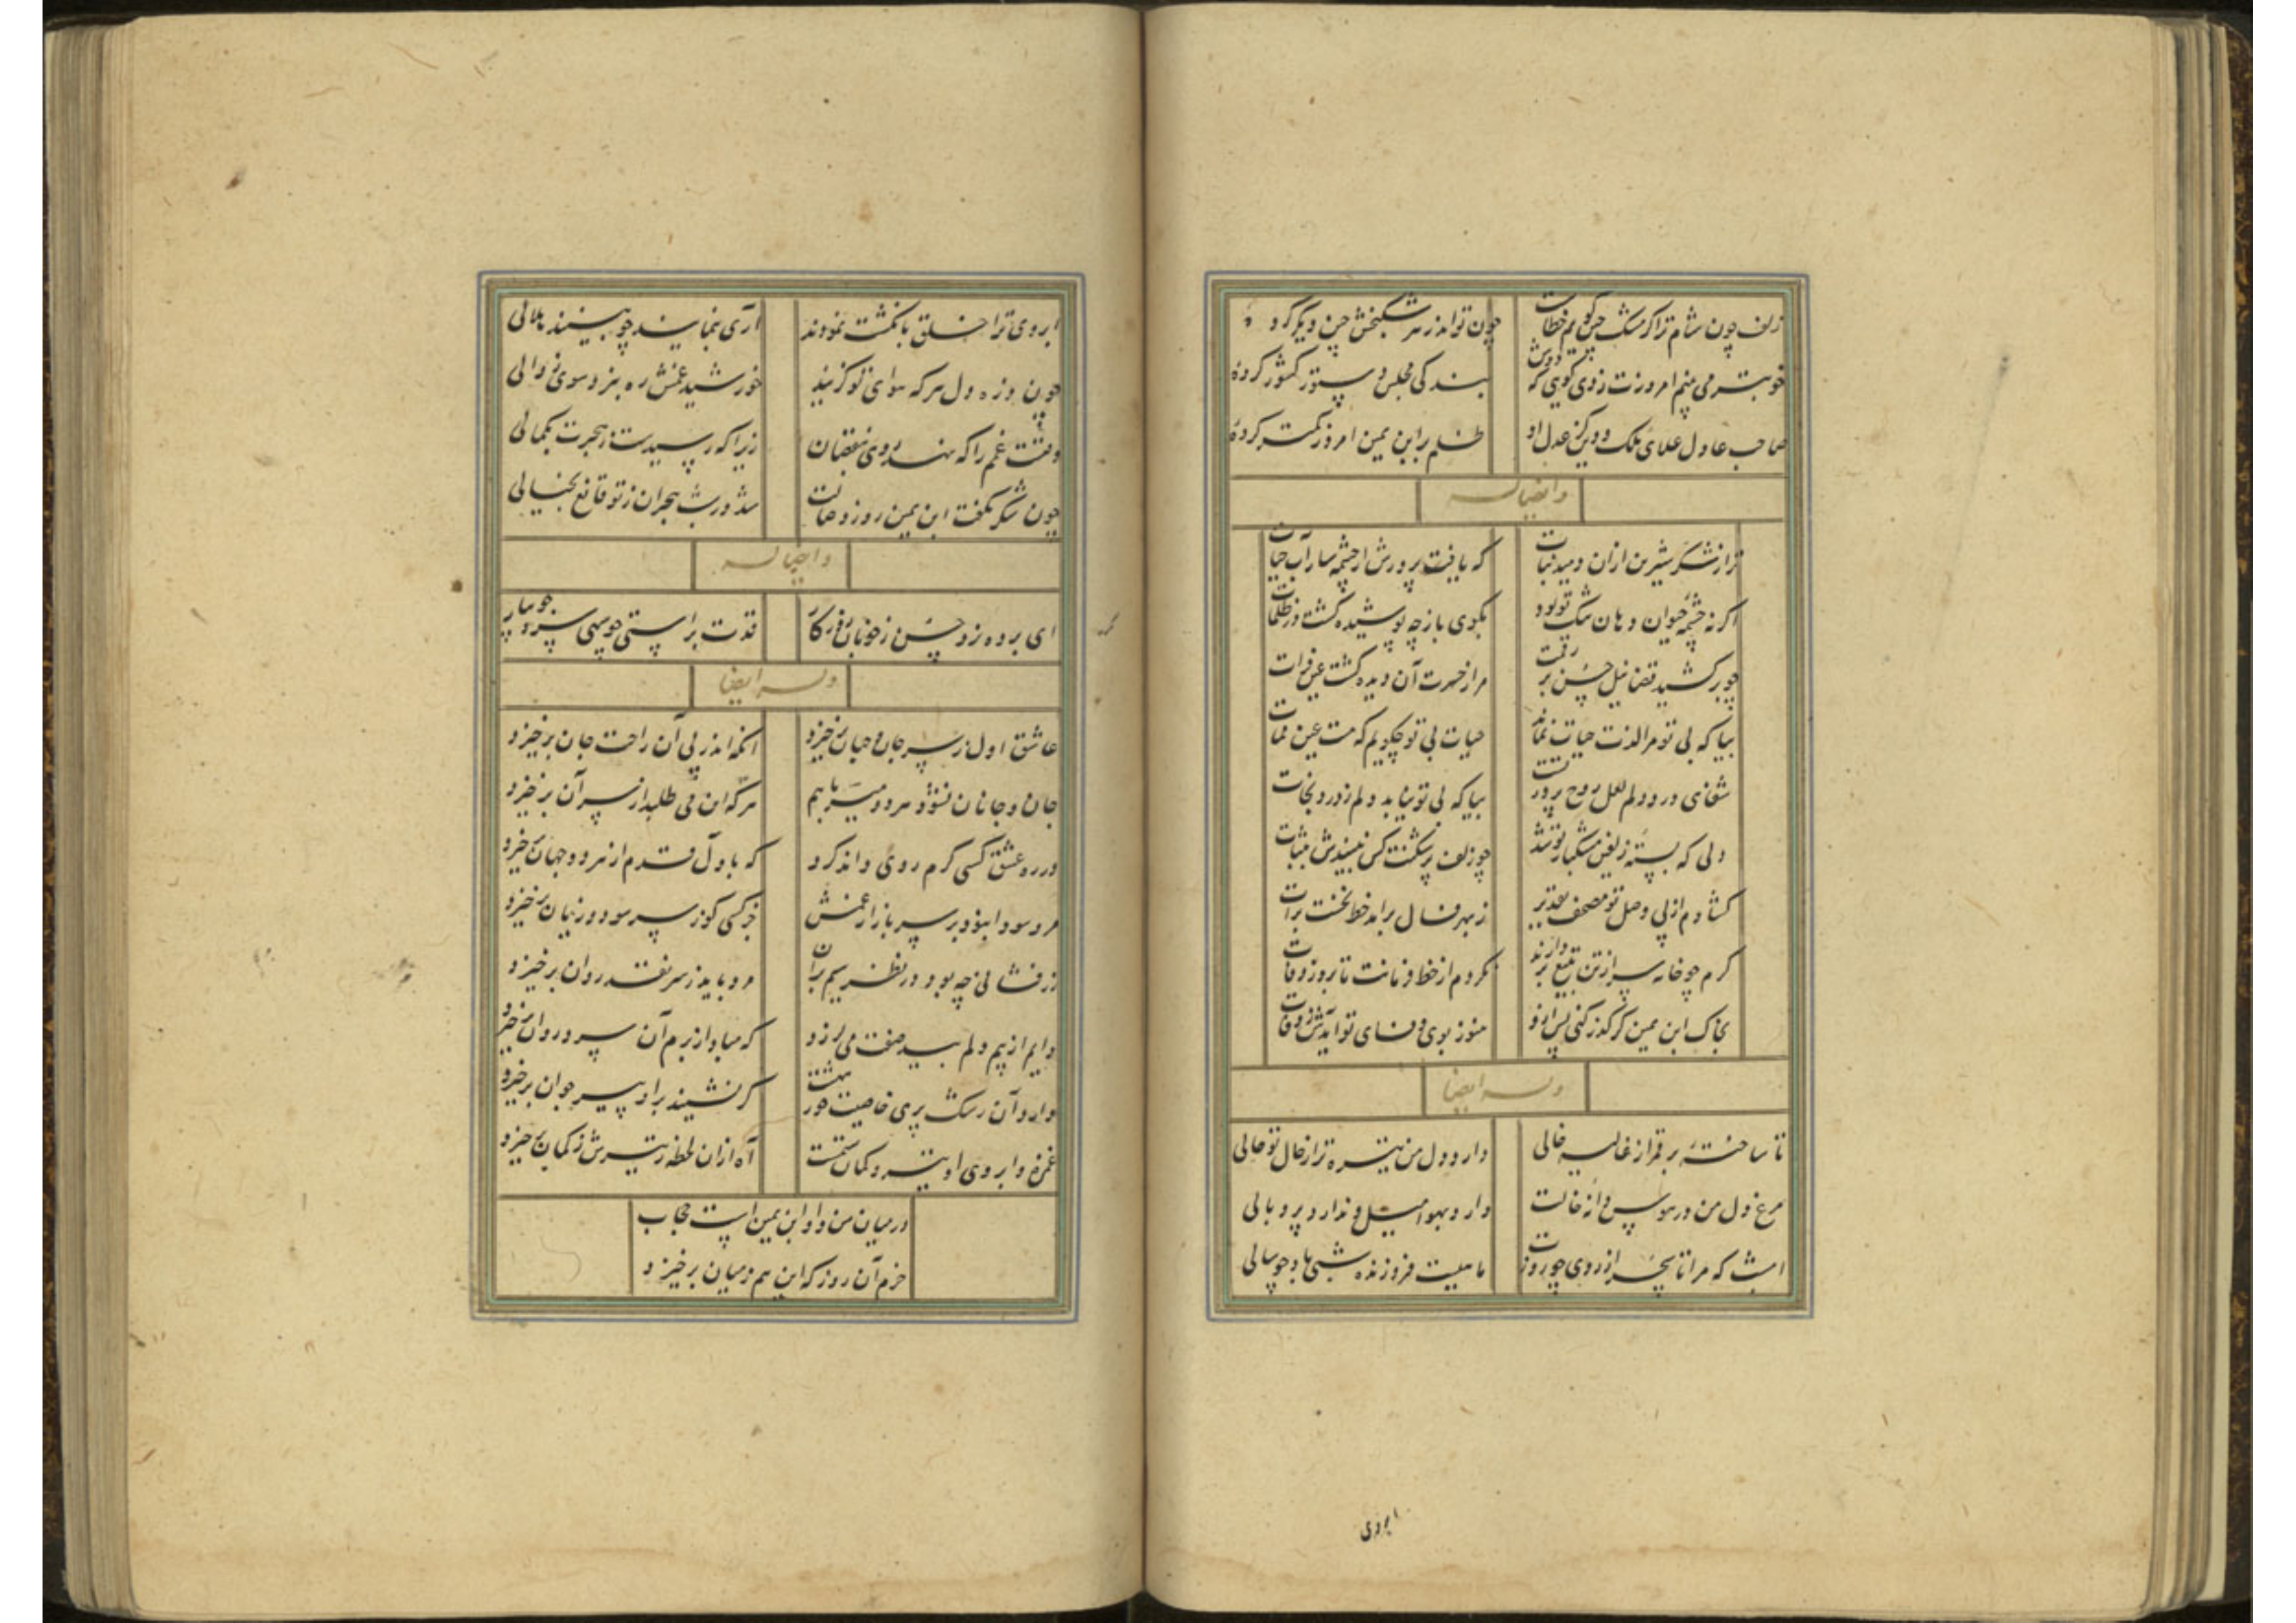 زلف چون شام ترا کر مشک چین کویم خطاست چون تواند زهر شکنجش چین دیکر کرد
خوبتر می بینم امروزت ز دی کویی که دوش بندکی مجلس دستور کشور کرده
صاحب عادل علای ملک و دین کز عدل او ظلم بر ابن یمین امروز کمتر کرده
و ایضاله
ترا ز شکر شیرین ازان دمید نبات که یافت پرورش از چشمه سار آب حیات
اکر نه چشمه حیوان دهان تنک تو بود بکوی باز چه پوشیده کشت در ظلمات
چو برکشید قضا نیل حسن بر رقمت مرا ز حسرت آن دیده کشت عین فرات
بیا که بی تو مرا لذت حیات نماند حیات بی تو چکویم که هست عین ممات
شفای درد دلم لعل روح پرور تست بیا که بی تو نیابد دلم ز درد نجات
دلی که بسته زلفین مشکبار تو شد چو زلف پر شکنت کس نبیندش بثبات
کشادم از پی وصل تو مصحف تقدیر ز بهر فال برآمد خط نخست برات
کرم چو خامه سر از تن بتیغ بردارند نکردم از خط فرمانت تا بروز وفات
بخاک ابن یمین کر کذر کنی پس ازو هنوز بوی وفای تو آید ز رفات
وله ایضا
تا ساخته بر قمر از غالیه خالی دارد دل من تیره تر از خال تو حالی
مرغ دل من در هوس دانه خالت دارد بهوا میل و ندارد پر و بالی
امشب که مرا تا بسحر از روی چو روزت ماهیست فروزنده شبی باد چو سالی
ابروی
ابروی ترا خلق بانکشت نمودند آری بنمایند چو بینند هلالی
چون ذره دل هر که هوای تو کزیند خورشید غمش ره نبرد سوی زوالی
وقتست غمم را که نهد روی بنقصان زیرا که رسیدست ز هجرت بکمالی
چون شکر نکفت ابن یمین روز وصالت شد در شب هجران ز تو قانع بخیالی
و ایضاله
ای برده زو حسن ز خوبان روزکار قدت براستی چو سهی سرو جویبار
وله ایضا
عاشق اول ز سر جان و جهان برخیزد انکه اندر پی آن راحت جان برخیزد
جان و جانان نشود هر دو میسر با هم هر که این می طلبد از سر آن برخیزد
در ره عشق کسی کرم روی داند کرد که باول قدم از هر دو جهان برخیزد
مرد سودا نبود بر سر بازار غمش جز کسی کو ز سر سود و زیان برخیزد
زر فشانی چه بود در نظر سیم بران مرد باید ز سر نقد روان برخیزد
دایم از بیم دلم بید صفت می لرزد که مبادا ز برم آن سرو روان برخیزد
دارد آن رشک پری خاصیت حور بهشت کر نشیند بر او پیر جوان برخیزد
غمزه و ابروی او تیر و کمان ستمست آه ازان لحظه که تیرش ز کمان برخیزد
در میان من و او ابن یمین است حجاب
خرم آن روز که این هم ز میان برخیزد